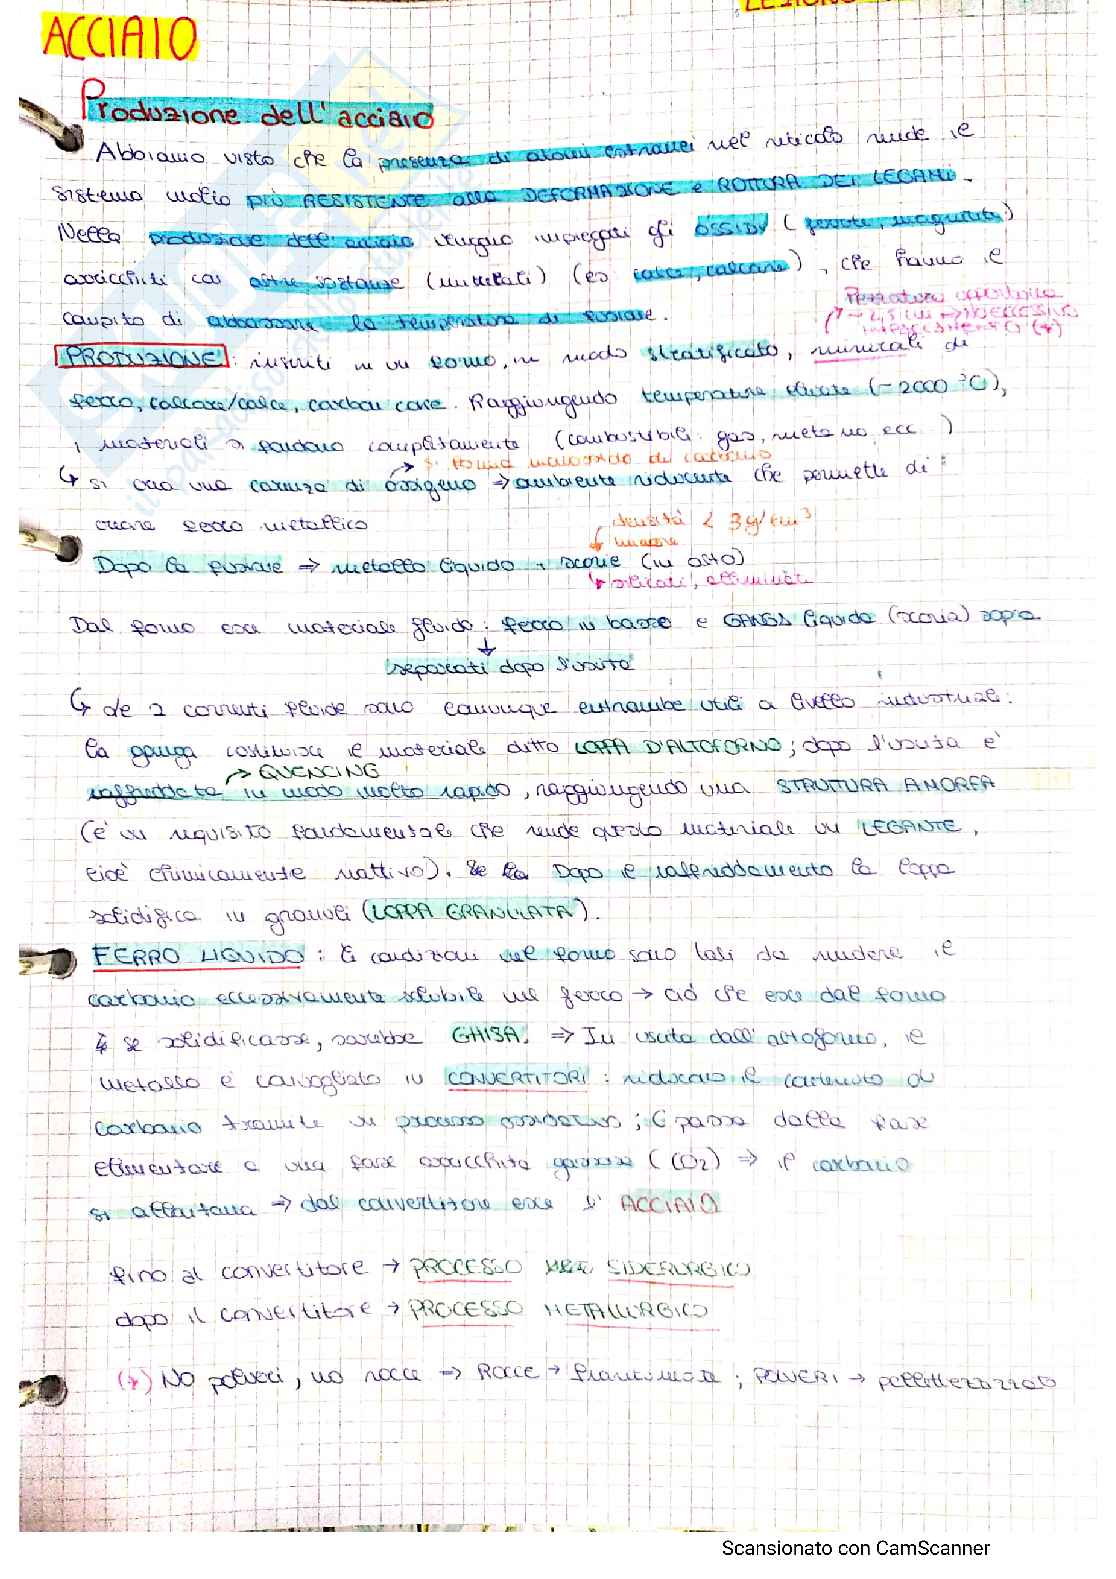 LEZIONE
ACCIAIO
Produzione dell'acciaio
Abbiamo visto che la presenza di atomi estranei nel reticolo rende il
sistema molto più RESISTENTE alla DEFORMAZIONE e ROTTURA DEI LEGAMI.
Nella produzione dell'acciaio vengono impiegati gli OSSIDI (, magnetite)
arricchiti con altre sostanze (minerali) (es calce, calcare), che hanno il
compito di abbassare la temperatura di fusione.
Pezzatura
PRODUZIONE: inseriti in un forno, in modo stratificato, minerali di
ferro, calcare/calce, carbon coke. Raggiungendo temperature elevate (~2000 °C),
i materiali si fondono completamente (combustibili: gas, metano, ecc.)
si forma monossido di carbonio
↳ si crea una carenza di ossigeno → ambiente riducente che permette di:
creare ferro metallico
densità < 3 g/cm³
Dopo la fusione ⇒ metallo liquido + scorie (in alto)
↳ silicati, alluminati
Dal forno esce materiale fluido: ferro in basso e GANGA liquida (scoria) sopra
↓
separati dopo l'uscita
↳ le 2 correnti fluide sono comunque entrambe utili a livello industriale:
la ganga costituisce il materiale detto LOPPA D'ALTOFORNO; dopo l'uscita è
→ QUENCING
raffreddata in modo molto rapido, raggiungendo una STRUTTURA AMORFA
(è un requisito fondamentale che rende questo materiale un LEGANTE,
cioè chimicamente reattivo). Se la Dopo il raffreddamento la loppa
solidifica in granuli (LOPPA GRANULATA).
FERRO LIQUIDO: le condizioni nel forno sono tali da rendere il
carbonio eccessivamente solubile nel ferro → ciò che esce dal forno
↳ se solidificasse, sarebbe GHISA. ⇒ In uscita dall'altoforno, il
metallo è convogliato in CONVERTITORI: riducono il contenuto di
carbonio tramite un processo ossidativo; C passa dalla fase
elementare a una fase arricchita gassosa (CO2) ⇒ il carbonio
si allontana → dal convertitore esce l'ACCIAIO
fino al convertitore → PROCESSO SIDERURGICO
dopo il convertitore → PROCESSO METALLURGICO
(*) NO polveri, no rocce → ROCCE → frantumate; POLVERI → pellettizzazione
Scansionato con CamScanner